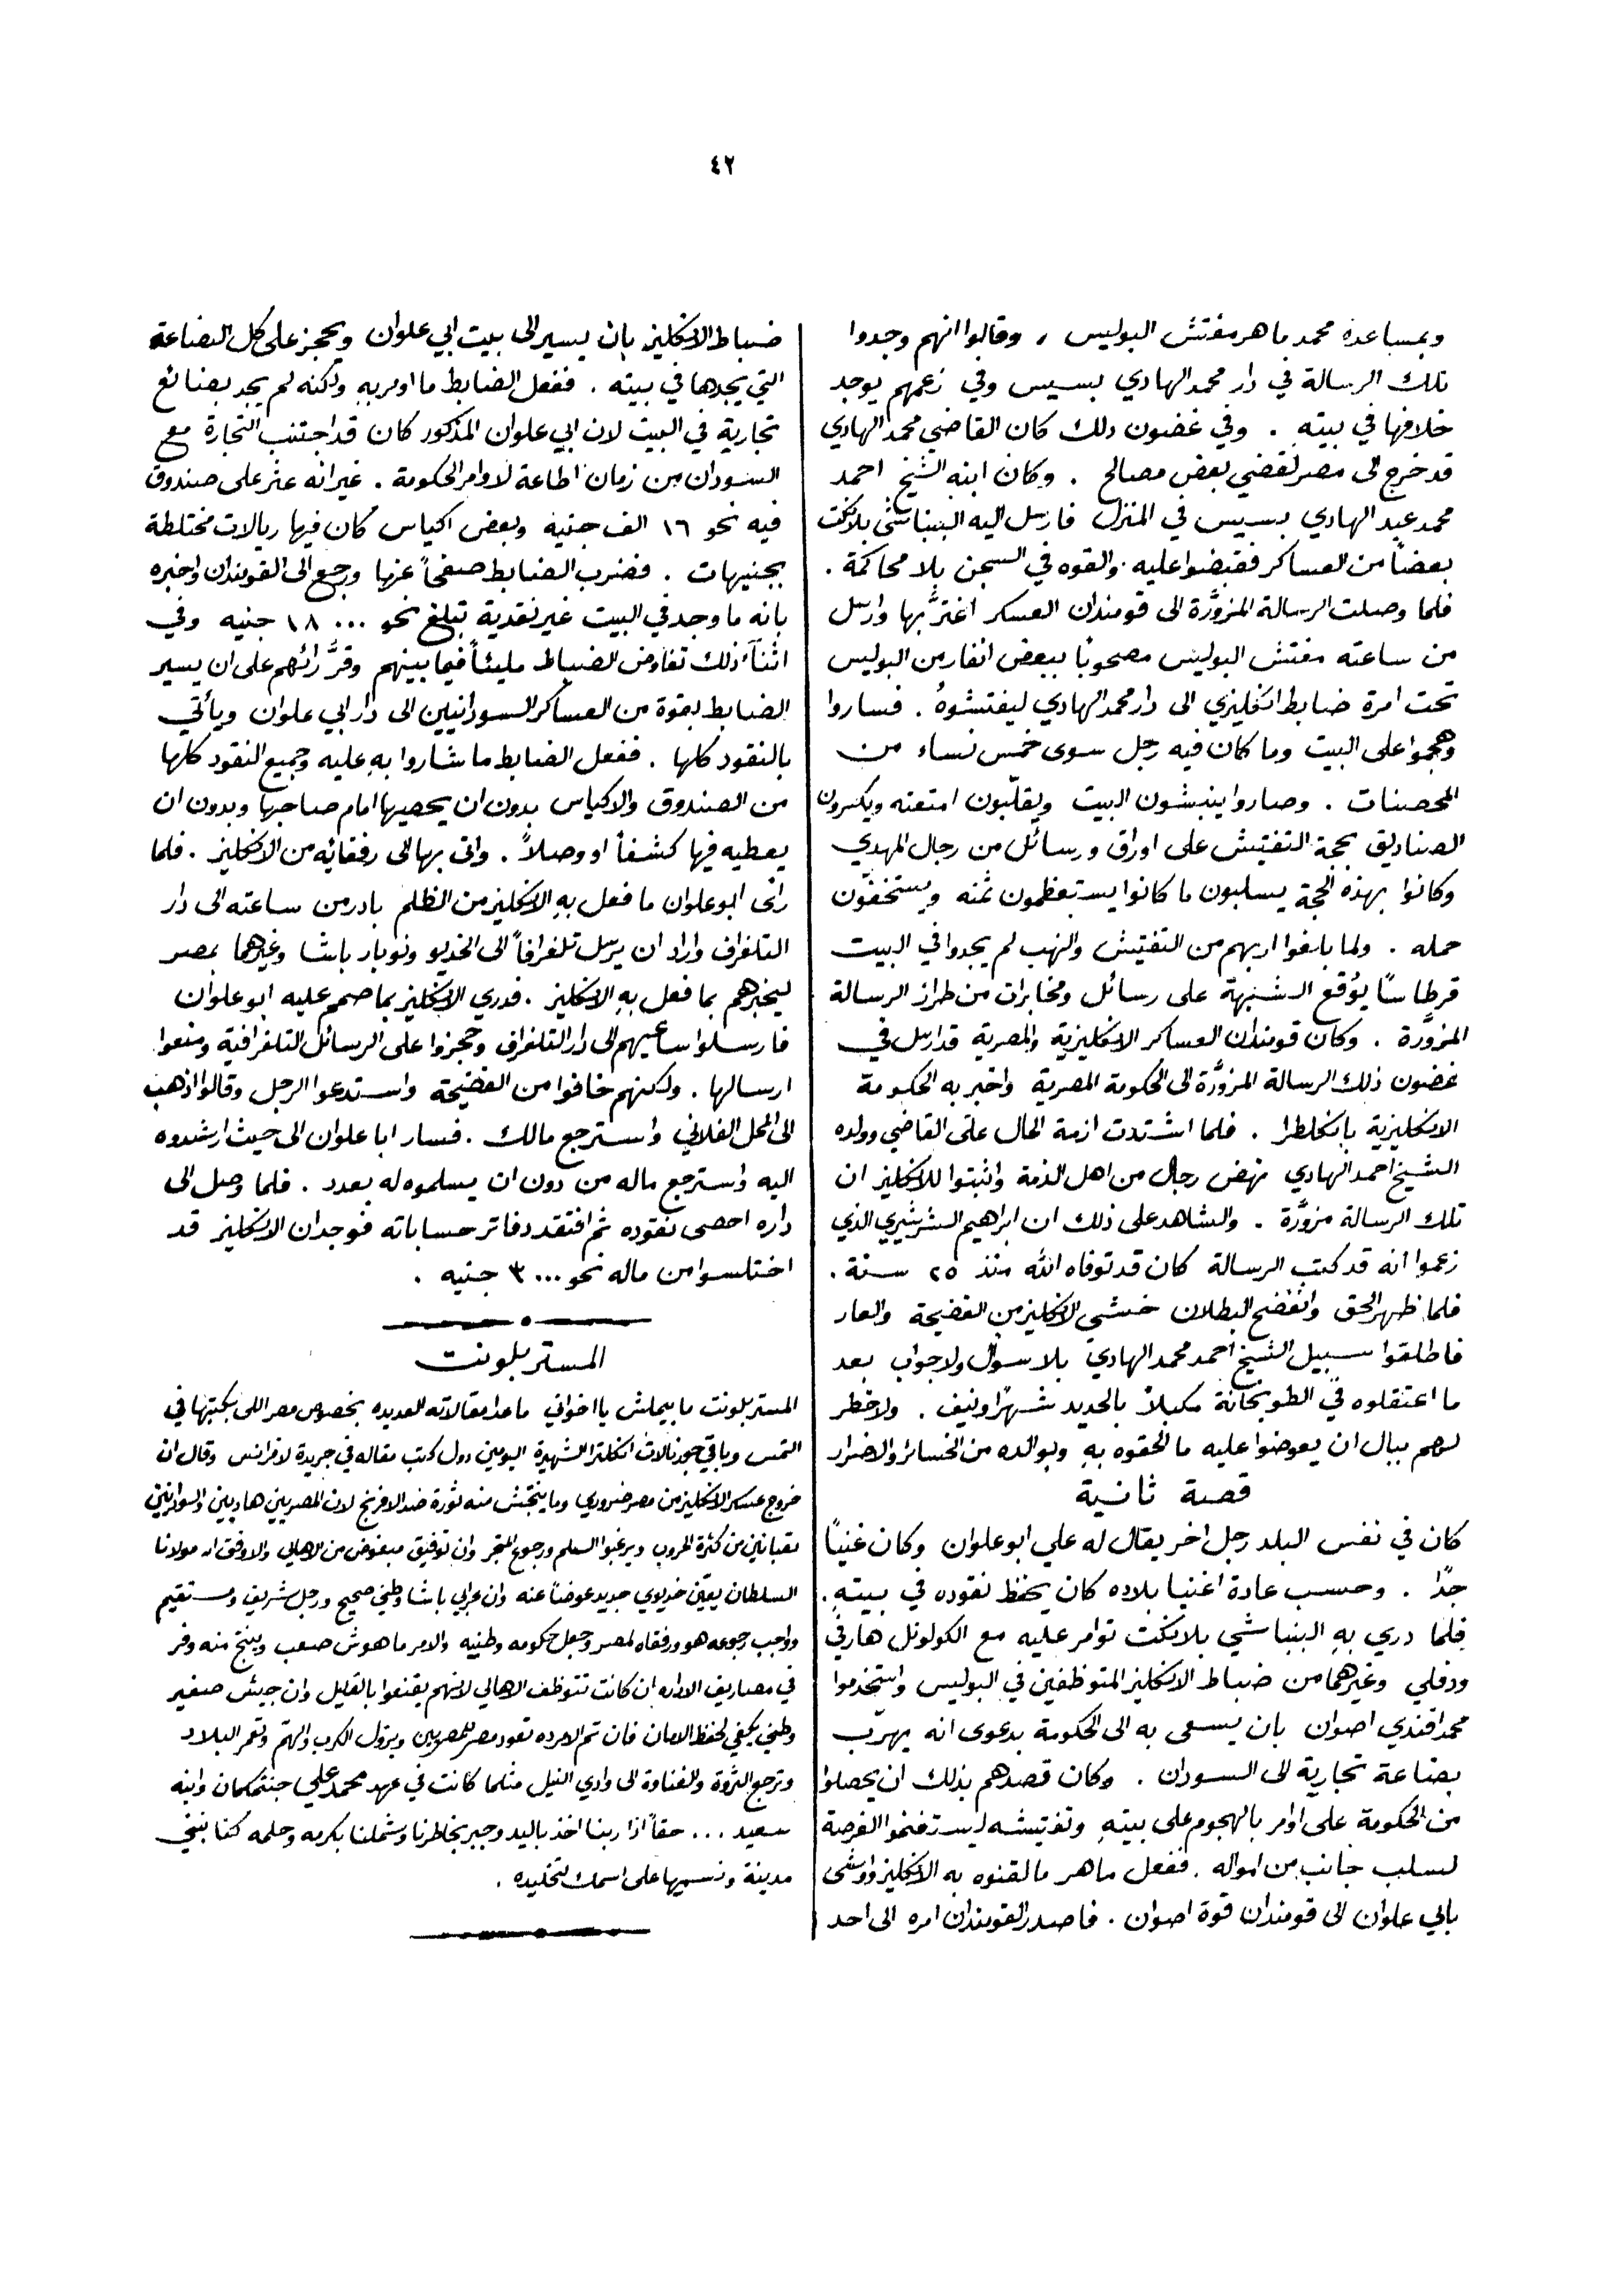 ٤٢
وبمساعدة محمد ماهر مفتش البوليس ، وقالوا انهم وجدوا
تلك الرسالة في دار محمد الهادي بسيس وفي زعمهم يوجد
خلافها في بيته . وفي غضون ذلك كان القاضي محمد الهادي
قد خرج الى مصر لقضي بعض مصالح . وكان ابنه الشيخ احمد
محمد عبد الهادي بسيس في المنزل فارسل اليه البنباشي بلانكت
بعضاً من العساكر فقبضوا عليه والقوه في السجن بلا محاكمة .
فلما وصلت الرسالة المزوَّرة الى قومندان العسكر اغترَّ بها وارسل
من ساعته مفتش البوليس مصحوبًا ببعض انفار من البوليس
تحت امرة ضابط انكليزي الى دار محمد الهادي ليفتشوهُ . فساروا
وهجموا على البيت وما كان فيه رجل سوى خمس نساء من
المحصنات . وصاروا ينبشون البيت ويقلّبون امتعته ويكسرون
الصناديق بحجة التفتيش على اوراق ورسائل من رجال المهدي
وكانوا بهذه الحجة يسلبون ما كانوا يستعظمون ثمنه ويستخفّون
حمله . ولما بلغوا اربهم من التفتيش والنهب لم يجدوا في البيت
قرطاسًا يؤقع الشبهة على رسائل ومخابرات من طراز الرسالة
المزوَّرة . وكان قومندان العساكر الانكليزية والمصرية قد ارسل في
غضون ذلك الرسالة المزوَّرة الى الحكومة المصرية واخبر به الحكومة
الانكليزية بانكلطرا . فلما اشتدت ازمة الحال على القاضي وولده
الشيخ احمد الهادي نهض رجال من اهل الذمة واثبتوا للانكليز ان
تلك الرسالة مزوَّرة . والشاهد على ذلك ان ابراهيم الشربتيري الذي
زعموا انه قد كتب الرسالة كان قد توفاه الله منذ ٢٥ سنة .
فلما ظهر الحق وانفضح البطلان خشي الانكليز من الفضيحة والعار
فاطلقوا سبيل الشيخ احمد محمد الهادي بلا سوال ولا جواب بعد
ما اعتقلوه في الطوبخانة مكبلاً بالحديد شهرًا ونيف . ولا خطر
لهم ببال ان يعوضوا عليه ما الحقوه بهِ وبوالده من الخسائر والاضرار
قصة ثانية
كان في نفس البلد رجل اخر يقال له علي ابو علوان وكان غنيًا
جدًا . وحسب عادة اغنيا بلاده كان يحفظ نقوده في بيتهِ .
فلما دري بهِ البنباشي بلانكت توامر عليه مع الكولونل هارفي
ودفلي وغيرهما من ضباط الانكليز المتوظفين في البوليس واستخدموا
محمد افندي اصوان بان يسعى به الى الحكومة بدعوى انه يهرّب
بضاعة تجارية الى السودان . وكان قصدهم بذلك ان يحصلوا
من الحكومة على اوامر بالهجوم على بيتهِ وتفتيشه ليستغنموا الفرصة
لسلب جانب من امواله . ففعل ماهر ما لقنوه به الانكليز وواشى
بابي علوان الى قومندان قوة اصوان . فاصدر القومندان امره الى احد
ضباط الانكليز بان يسير الى بيت ابي علوان ويحجز على كل البضاعة
التي يجدها في بيته . ففعل الضابط ما اومر بهِ ولكنه لم يجد بضائع
تجارية في البيت لان ابي علوان المذكور كان قد اجتنب التجارة مع
السودان من زمان اطاعة لاوامر الحكومة . غير انه عثر على صندوق
فيه نحو ١٦ الف جنيه وبعض اكياس كان فيها ريالات مختلطة
بجنيهات . فضرب الضابط صفحاً عنها ورجع الى القومندان واخبره
بانه ما وجد في البيت غير نقدية تبلغ نحو ١٨٠٠٠ جنيه وفي
اثناءِ ذلك تفاوض الضباط مليئاً فيما بينهم وقرَّ رائهم على ان يسير
الضابط بقوة من العساكر السودانيين الى دار ابي علوان ويأتي
بالنقود كلها . ففعل الضابط ما شاروا بهِ عليه وجميع النقود كلها
من الصندوق والاكياس بدون ان يحصيها امام صاحبها وبدون ان
يعطيه فيها كشفاً او وصلاً . واتى بها الى رفقائه من الانكليز . فلما
رائى ابو علوان ما فعل بهِ الانكليز من الظلم بادر من ساعته الى دار
التلغراف واراد ان يرسل تلغرافاً الى الخديو ونوبار باشا وغيرهما بمصر
ليخبرهم بما فعل بهِ الانكليز . فدري الانكليز بما صمم عليه ابو علوان
فارسلوا ساعيهم الى دار التلغراف وحجزوا على الرسائل التلغرافية ومنعوا
ارسالها . ولكنهم خافوا من الفضيحة واستدعوا الرجل وقالوا اذهب
الى المحل الفلاني واسترجع مالك . فسار ابا علوان الى حيث ارشدوه
اليه واسترجع ماله من دون ان يسلموه له بعدد . فلما وصل الى
داره احصى نقوده ثم افتقد دفاتر حساباته فوجد ان الانكليز قد
اختلسوا من ماله نحو ٣٠٠٠ جنيه .
المستر بلونت
المستر بلونت ما بيملش يا اخواني ما عدا مقالاته العديده بخصوص مصر اللي بكتبها في
التمس وباقي جورنالات انكلترا الشهيرة اليومين دول كتب مقاله في جريدة لافرانس وقال ان
خروج عسكر الانكليز من مصر ضروري وما ينتجش منه ثورة ضد الافرنج لان المصريين هاديين والسودانيين
تعبانين من كثرة الحروب ويرغبوا السلم ورجوع المتجر وان توفيق مبغوض من الاهالي والاوفق ان مولانا
السلطان يعيّن خديوي جديد عوضاً عنه وان عرابي باشا وطني صحيح ورجل شريف ومستقيم
وواجب رجوعه هو ورفقاه لمصر وجعل حكومه وطنيه والامر ما هوش صعب وينتج منه وفر
في مصاريف الاداره ان كانت تتوظف الاهالي لانهم يقنعوا بالقليل وان جيش صغير
وطني يكفي لحفظ الامان فان تم الامر ده تعود مصر للمصريين ويزول الكرب والهمّ وتعمر البلاد
وترجع الثروة والغناوة الى وادي النيل مثلما كانت في عهد محمد علي جنتمكان وابنه
سعيد ... حقاً اذا ربنا اخذ باليد وجبر بخاطرنا وشملنا بكرمه وحلمه كنا نبني
مدينة ونسميها على اسمك لتخليده .